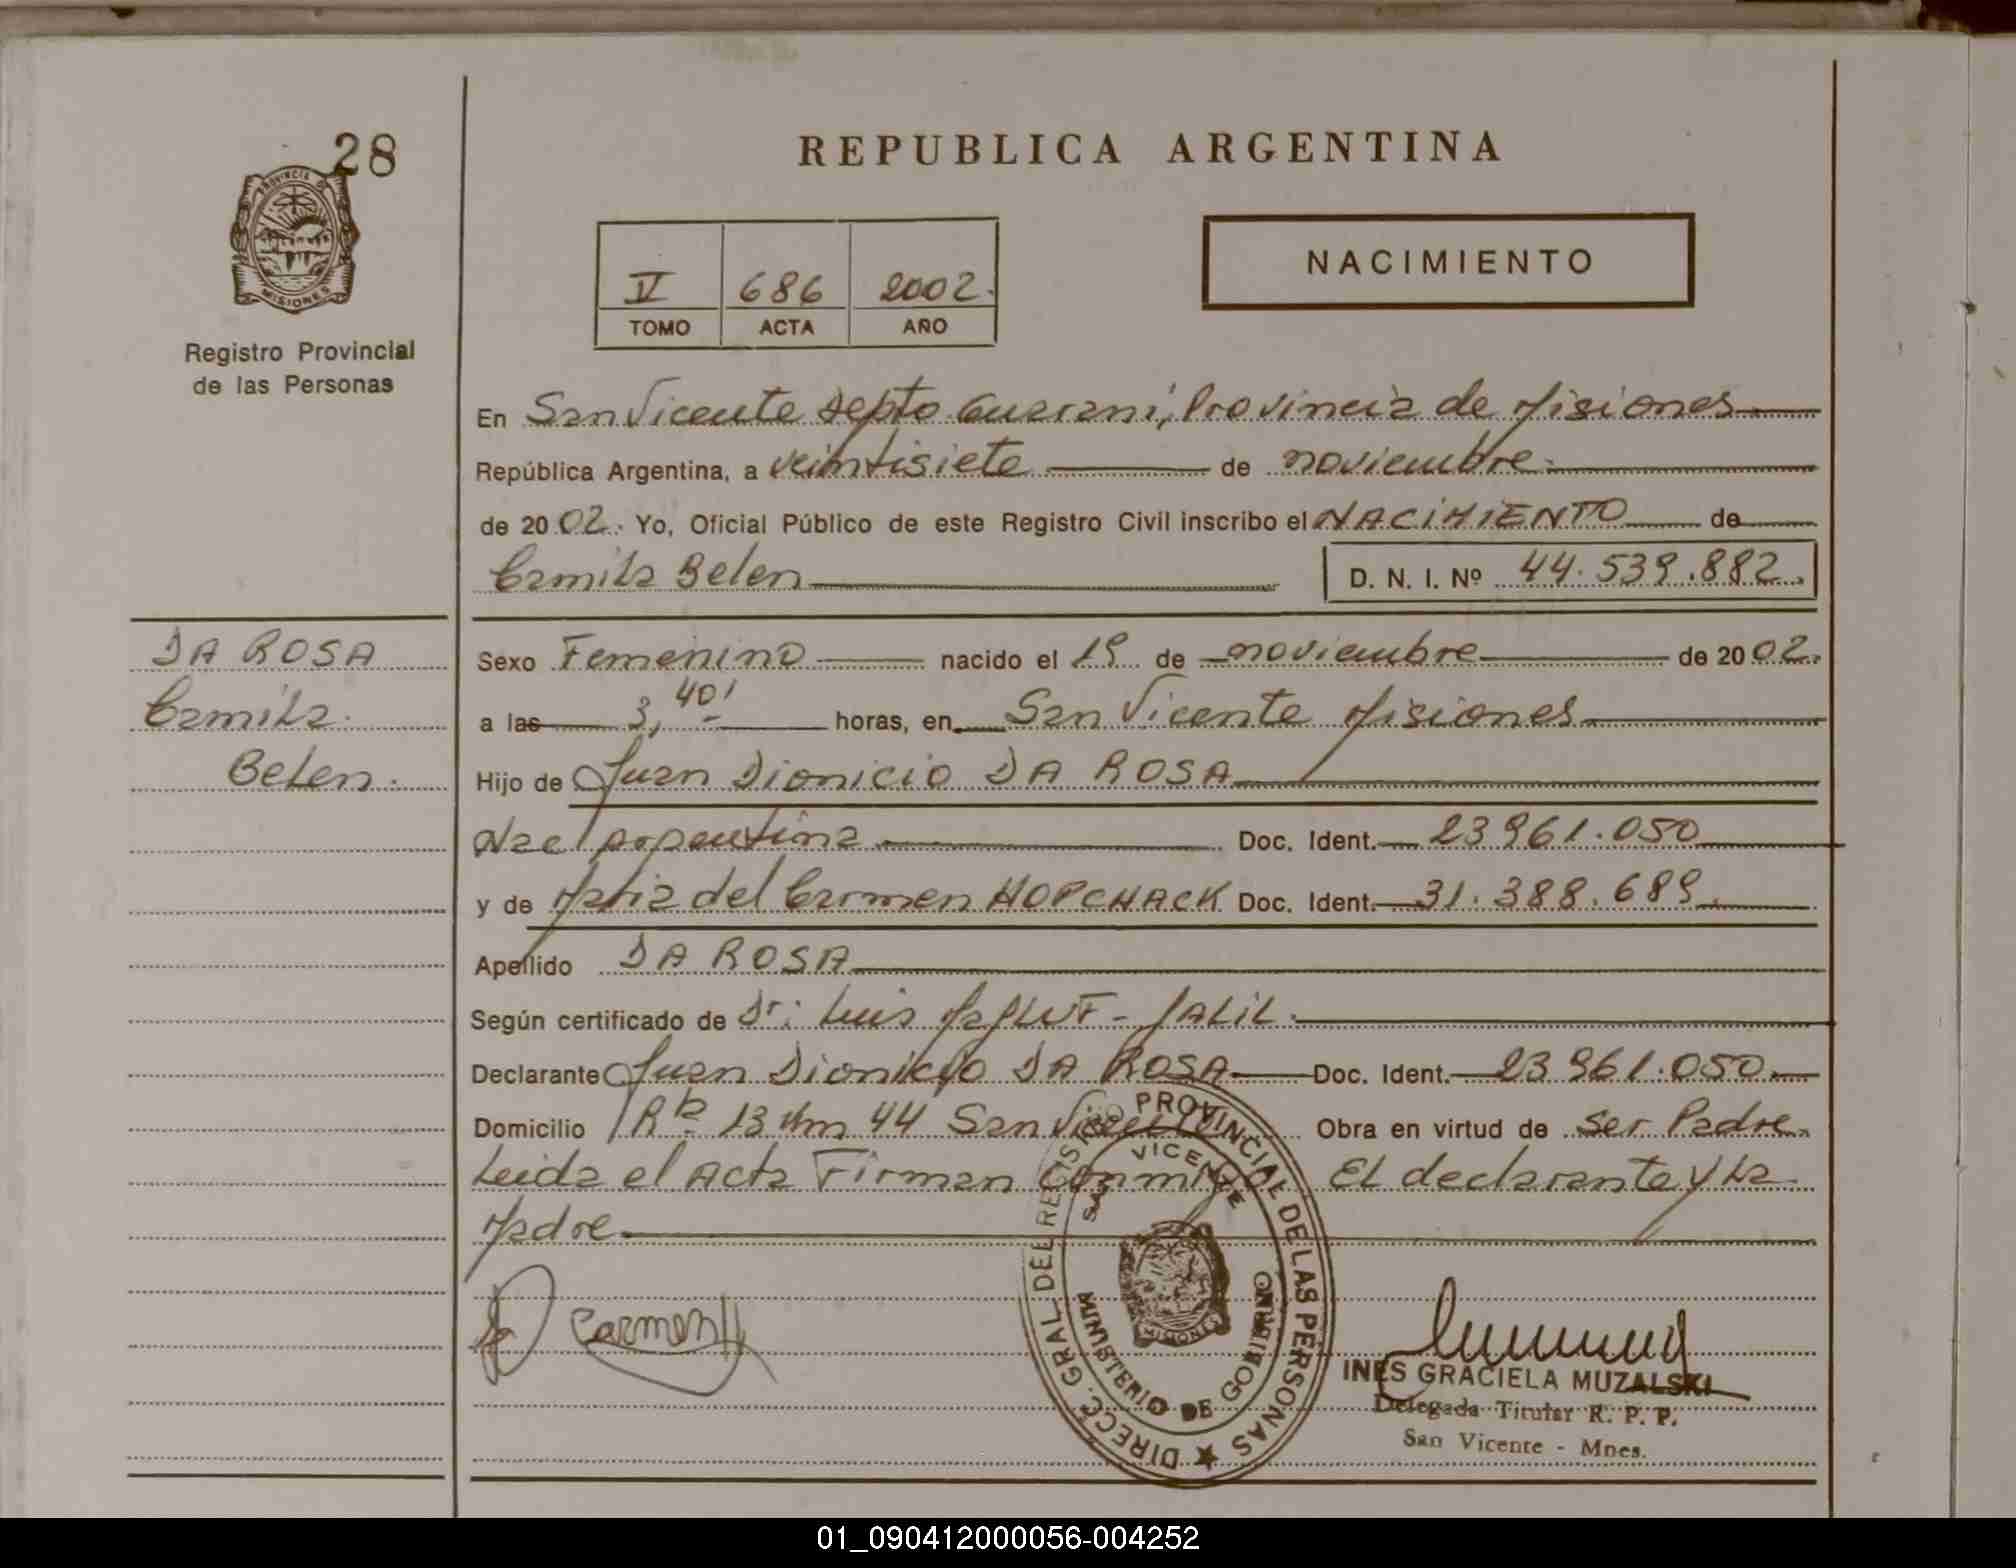 28
PROVINCIA DE
MISIONES
Registro Provincial
de las Personas
REPUBLICA ARGENTINA
V 686 2002.
TOMO ACTA AÑO
NACIMIENTO
En San Vicente Depto Guaraní, Provincia de Misiones
República Argentina, a veintisiete de noviembre.
de 2002. Yo, Oficial Público de este Registro Civil inscribo el NACIMIENTO de
Camila Belen D. N. I. Nº 44.539.882.
DA ROSA
Camila
Belen.
Sexo Femenino nacido el 19 de noviembre de 2002.
a las 3,40' horas, en San Vicente Misiones
Hijo de Juan Dionicio DA ROSA
Nac Argentina Doc. Ident. 23961.050
y de Maria del Carmen HOPCHACK Doc. Ident. 31.388.689.
Apellido DA ROSA
Según certificado de Dr: Luis - JALIL.
Declarante Juan Dionicio DA ROSA Doc. Ident. 23961.050.
Domicilio Rta 13 Km 44 San Vicente Obra en virtud de Ser Padre.
Leida el Acta Firman Conmigo El declarante y La
Madre
Carmen H
DIRECC. GRAL DEL REGISTRO PROVINCIAL DE LAS PERSONAS
SAN VICENTE
MINISTERIO DE GOBIERNO
MISIONES
INES GRACIELA MUZALSKI
Delegada Titular R. P. P.
San Vicente - Mnes.
01_090412000056-004252